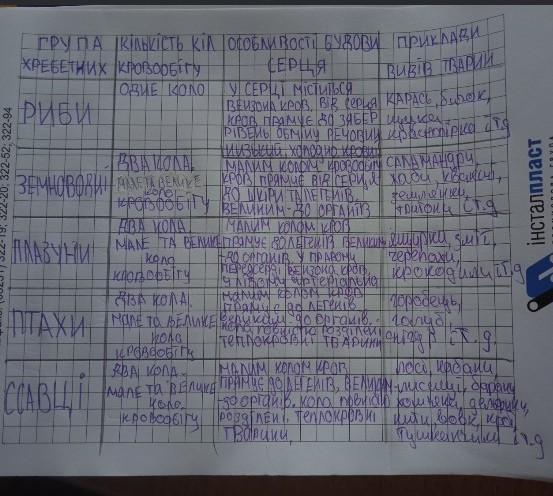 ГРУПА ХРЕБЕТНИХ
КІЛЬКІСТЬ КІЛ КРОВООБІГУ
ОСОБЛИВОСТІ БУДОВИ СЕРЦЯ
ПРИКЛАДИ ВИДІВ ТВАРИН
РИБИ
ОДНЕ КОЛО
У СЕРЦІ МІСТИТЬСЯ
ВЕНОЗНА КРОВ, ВІД СЕРЦЯ
КРОВ ПРЯМУЄ ДО ЗЯБЕР
РІВЕНЬ ОБМІНУ РЕЧОВИН
НИЗЬКИЙ, ХОЛОДНО КРОВНІ
КАРАСЬ, бичок,
щука,
краснопірка і т.д
ЗЕМНОВОДНІ
ДВА КОЛА.
МАЛЕ ТА ВЕЛИКЕ
КРОВООБІГУ
МАЛИМ КОЛОМ КРОВООБІГУ
КРОВ ПРЯМУЄ ВІД СЕРЦЯ
ДО ШКІРИ ТА ЛЕГЕНІВ,
ВЕЛИКИМ - ДО ОРГАНІВ
САЛАМАНДРИ,
жаби,
тритони і т.д
ПЛАЗУНИ
ДВА КОЛА.
МАЛЕ ТА ВЕЛИКЕ
КОЛО
КРОВООБІГУ
МАЛИМ КОЛОМ КРОВ
ПРЯМУЄ ДО ЛЕГЕНІВ ВЕЛИКИМ
-ДО ОРГАНІВ У ПРАВОМУ
ПЕРЕДСЕРДІ ВЕНОЗНА КРОВ,
У ЛІВОМУ АРТЕРІАЛЬНА
ящірки, змії,
черепахи,
крокодили і т.д
ПТАХИ
ДВА КОЛА.
МАЛЕ ТА ВЕЛИКЕ
КОЛА
КРОВООБІГУ
МАЛИМ КОЛОМ КРОВ
ПРЯМУЄ ДО ЛЕГЕНІВ
ВЕЛИКИМ - ДО ОРГАНІВ.
КОЛА ПОВНІСТЮ РОЗДІЛЕНІ
ТЕПЛОКРОВНІ ТВАРИНИ
горобець,
голуб,
снігур і т.д.
ССАВЦІ
ДВА КОЛА.
МАЛЕ ТА ВЕЛИКЕ
КОЛА
КРОВООБІГУ
МАЛИМ КОЛОМ КРОВ
ПРЯМУЄ ДО ЛЕГЕНІВ, ВЕЛИКИМ
-ДО ОРГАНІВ. КОЛА ПОВНІСТЮ
РОЗДІЛЕНІ, ТЕПЛОКРОВНІ
ТВАРИНИ,
лосі, кабани,
лисиці, барани
хом'яки, дельфіни,
кити, вовк, кріт,
тушканчики і т.д
322-19; 322-20; 322-52; 322-94
інсталпласт